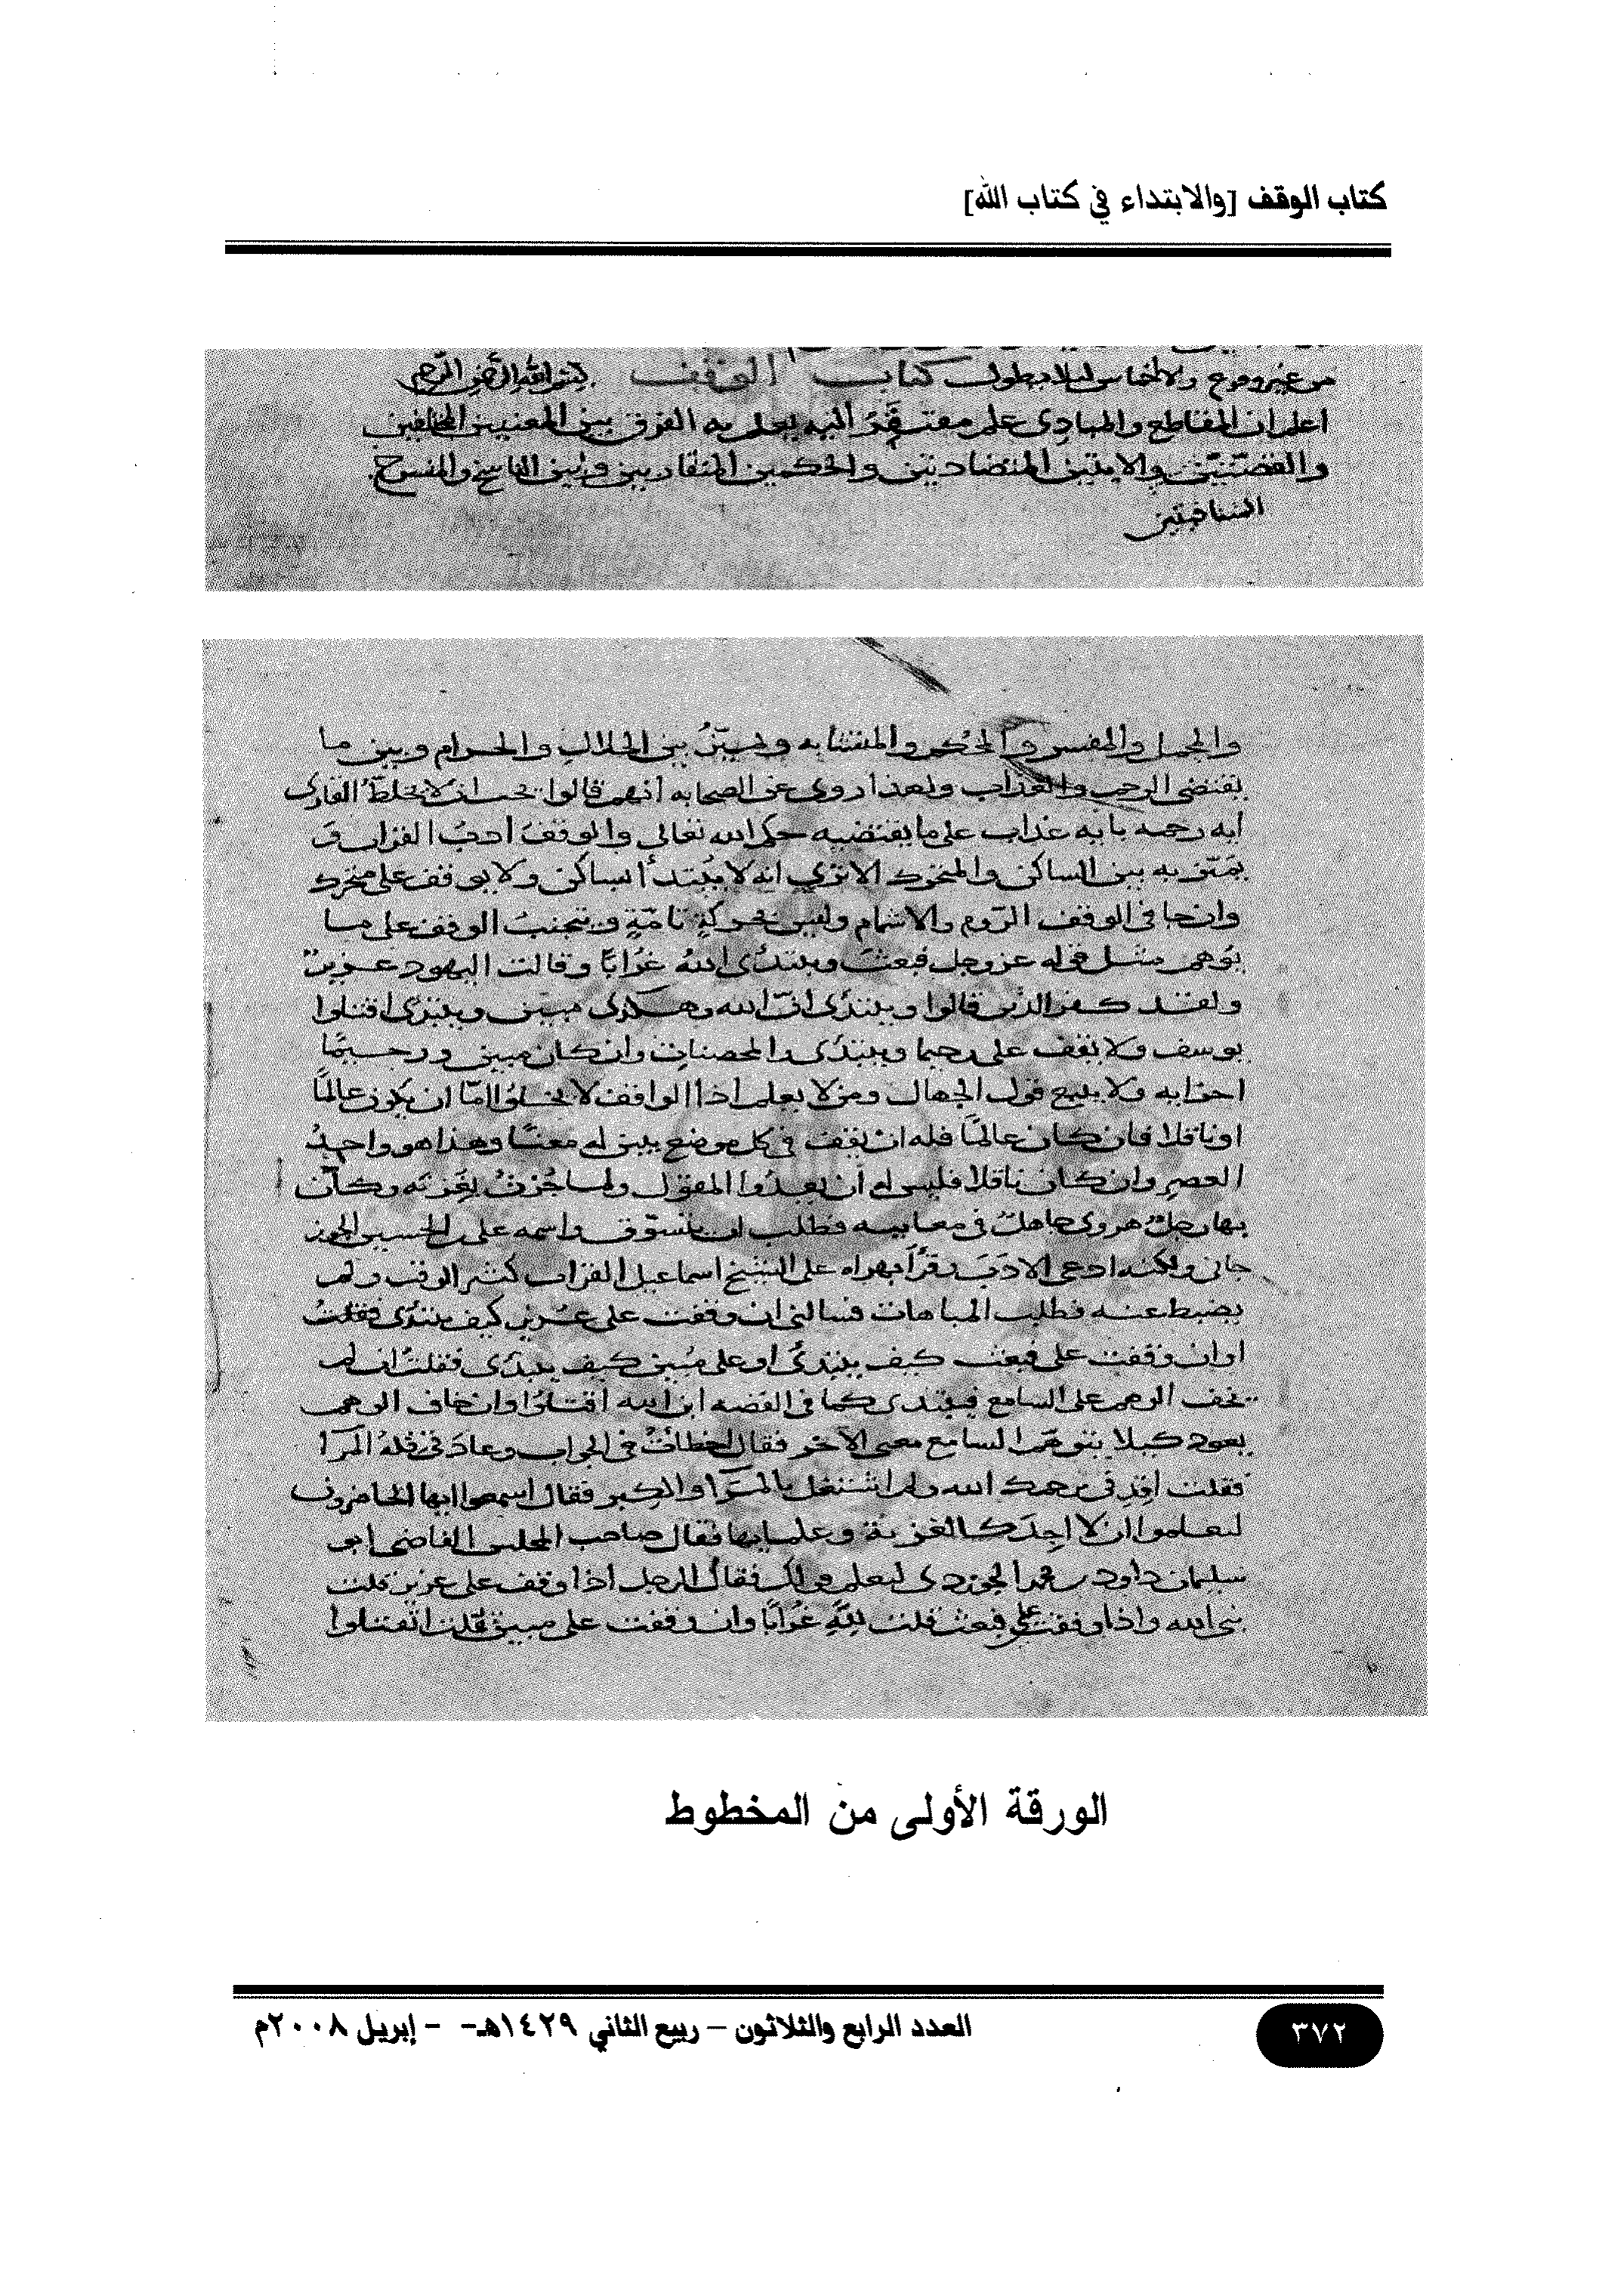 كتاب الوقف [والابتداء في كتاب الله]
كتاب الوقف بسم الله الرحمن الرحيم
اعلم ان المقاطع والمبادى علم مفتقر اليه يعلم به الفرق بين المعنيين المختلفين
والقصتين والايتين المتضادتين والحكمين المتقاربين وبين الناسخ والمنسوخ
والمجمل والمفسر والمحكم والمتشابه ويميز بين الحلال والحرام وبين ما
يقتضى الرحمة والعذاب ولهذا روى عن الصحابه انهم قالوا يجب ان لا يخلط القارى
ايه رحمه بايه عذاب على ما يقتضيه حكم الله تعالى والوقف ادب القران
يميز به بين الساكن والمتحرك الا ترى انه لا يبتدأ بساكن ولا يوقف على متحرك
وان جا فى الوقف الروم والاشمام وليس بحركة تامة ويتجنب الوقف على ما
يوهم مثل قوله عز وجل فبعث ويبتدى الله غرابا وقالت اليهود عزير
ولقد كفر الذين قالوا ويبتدى ان الله وهكذى مبين ويبتدى اقتلوا
يوسف ولا يقف على رحيما ويبتدى والمحصنات وان كان مبين ورحيما
اخر ايه ولا يتبع قول الجهال ومن لا يعلم اذ الواقف لا يخلوا اما ان يكون عالما
او ناقلا فان كان عالما فله ان يقف فى كل موضع يبين له معنا وهذا هو واحد
العصر وان كان ناقلا فليس له ان يعدوا المنقول ولما جزت بغزنه وكان
بها رجل هروى جاهل فى معانيه فطلب ان يتسوق واسمه على بن الحسين الجوز
جانى ولكنه ادعى الادب وقرأ بهراه على الشيخ اسماعيل القراب كتبه الوقف ولم
يضبط عنه فطلب المباهات فسالنى ان وقفت على عزير كيف يبتدى فقلت
او ان وقفت على فبعث كيف يبتدئ او على مبين كيف يبتدى فقلت ان لم
يخف الوهم على السامع فيبتدى كما فى القصه ابن الله اقتلوا وان خاف الوهم
يعود كيلا يتوهم السامع معنى الاخر فقال اخطات فى الجواب وعاد
فقلت رحمك الله ولم اشتغل بالمرا والكبر فقال اسمعوا ايها الحاضرون
ليعلموا ان لا اجد كالغزنة وعلمايها فقال صاحب المجلس القاضى ابو
سليمان داود بن محمد الجوزدى لنعلم قولك فقال الرجل اذا وقف على عزير قلت
نبى الله واذا وقفت على فبعث قلت لله غرابا وان وقفت على مبين قلت اتقتلوا
الورقة الأولى من المخطوط
٣٧٢
العدد الرابع والثلاثون – ربيع الثاني ١٤٢٩هـ- - إبريل ٢٠٠٨م